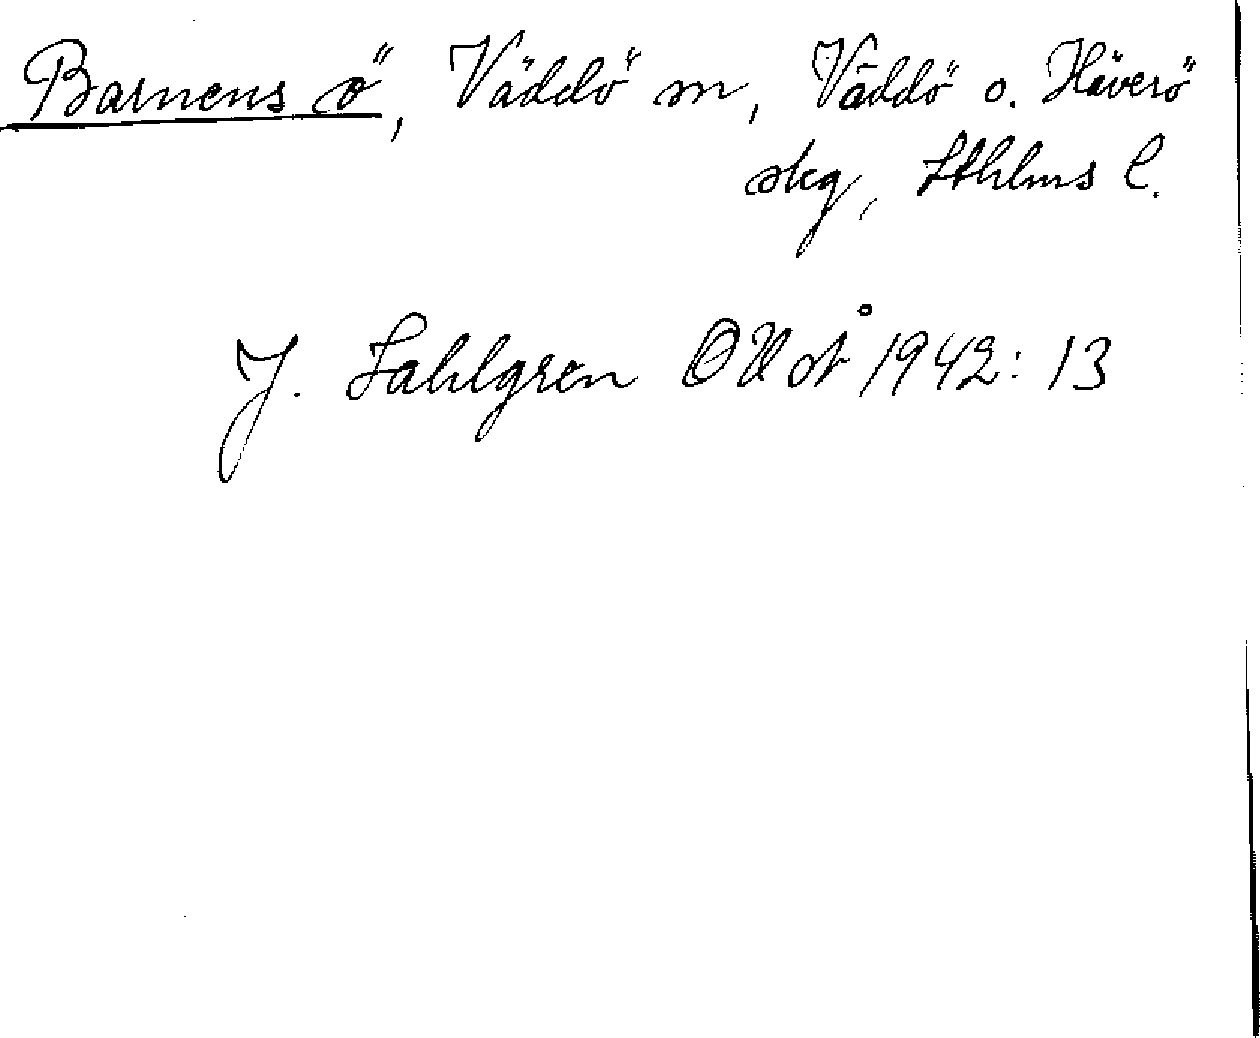 Barnens ö, Väddö sn, Väddö o. Häverö
skg, Sthlms l.
J. Sahlgren OUot 1942: 13